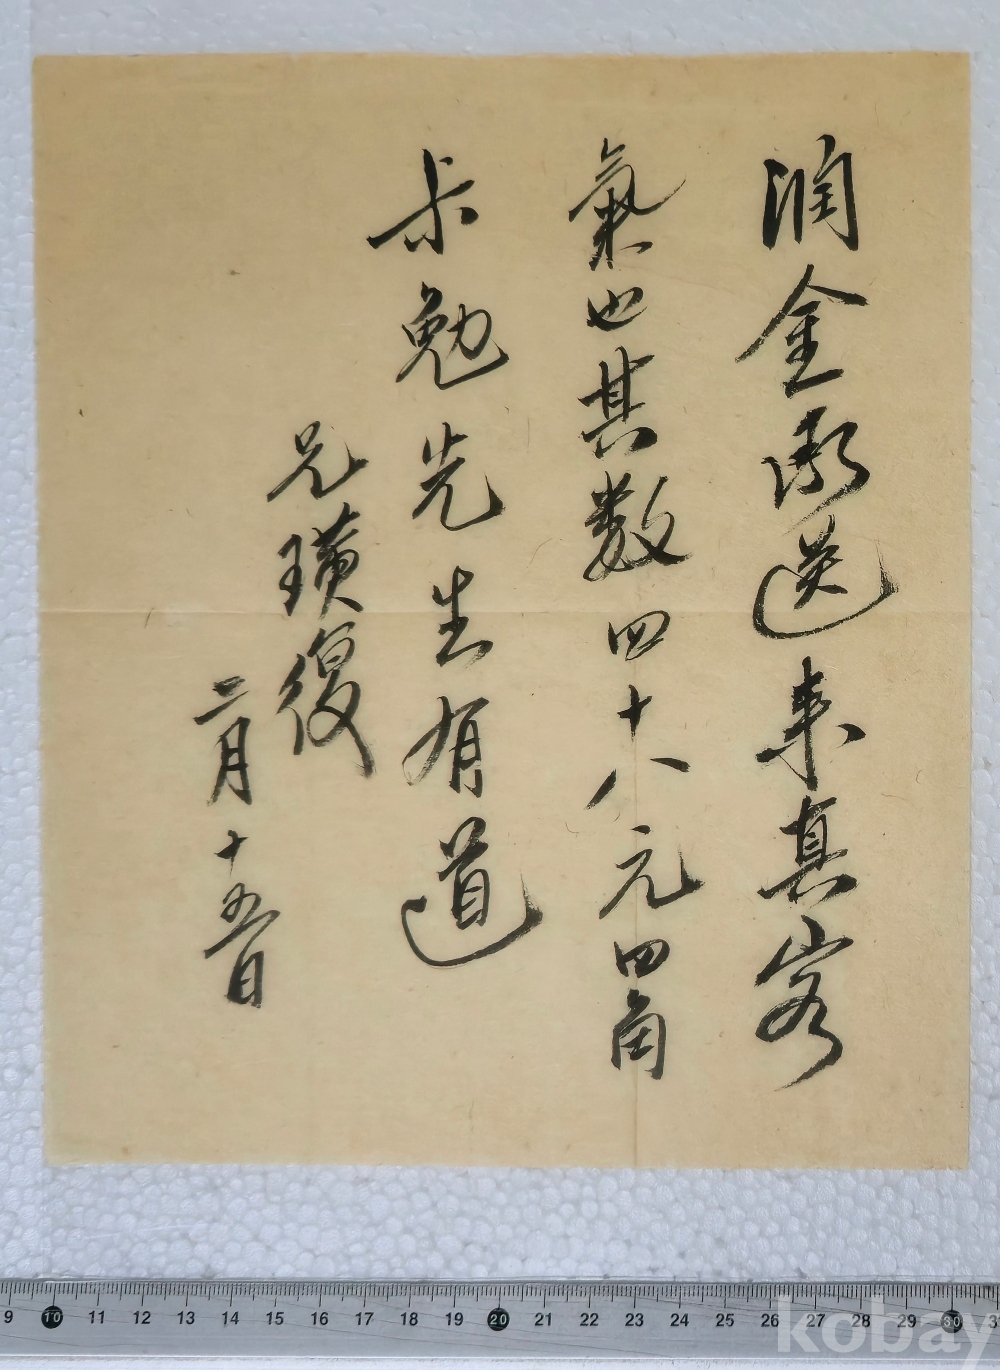 润金承送来真客
氣也其数四十八元四角
尗勉先生有道
兄璜復
二月十五日
9 10 11 12 13 14 15 16 17 18 19 20 21 22 23 24 25 26 27 28 29 30
kobay